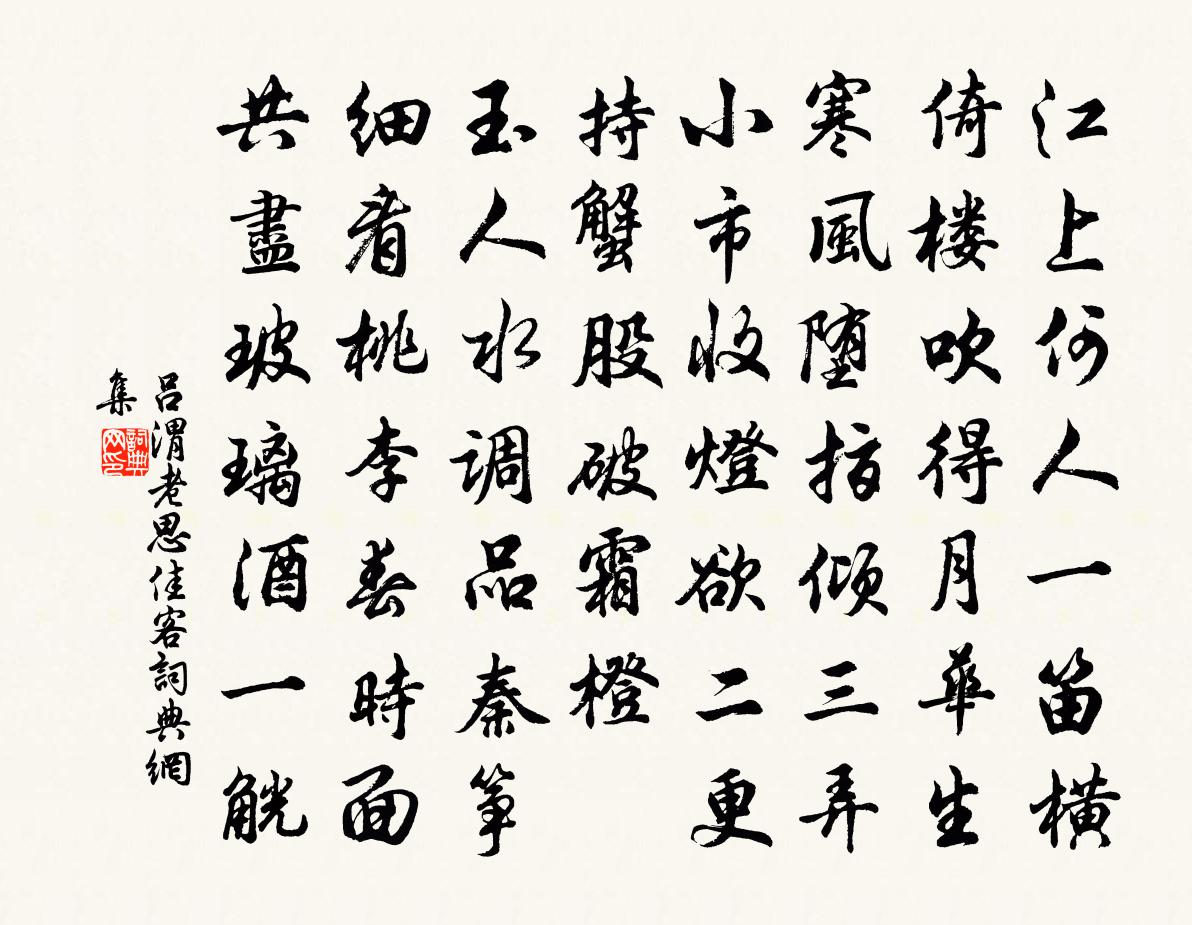 江上何人一笛橫
倚楼吹得月華生
寒風堕指倾三弄
小市收燈欲二更
持蟹股破霜橙
玉人水调品秦筝
细看桃李春時面
共盡玻璃酒一觥
吕渭老思佳客詞典網
集
詞典网印